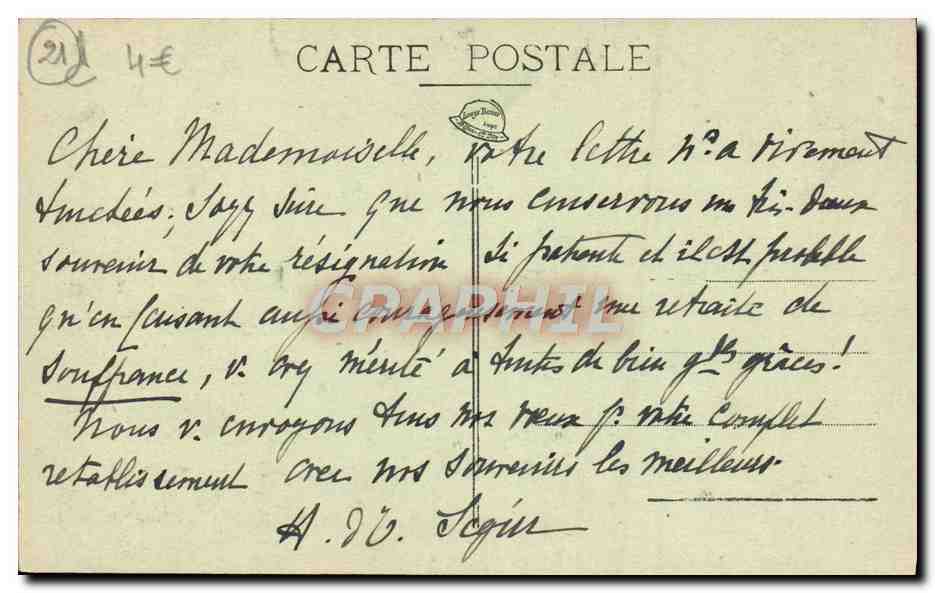 21 4€
CARTE POSTALE
Chère Mademoiselle, votre lettre ns a vivement
touchées; soyez sûre que nous conservons un très doux
souvenir de votre résignation si patiente et il est probable
qu'en faisant aussi courageusement une retraite de
souffrance, v. avez mérité à toutes de bien gdes grâces!
Nous v. envoyons tous nos vœux pr votre complet
retablissement avec nos souvenirs les meilleurs.
CRAPHIL